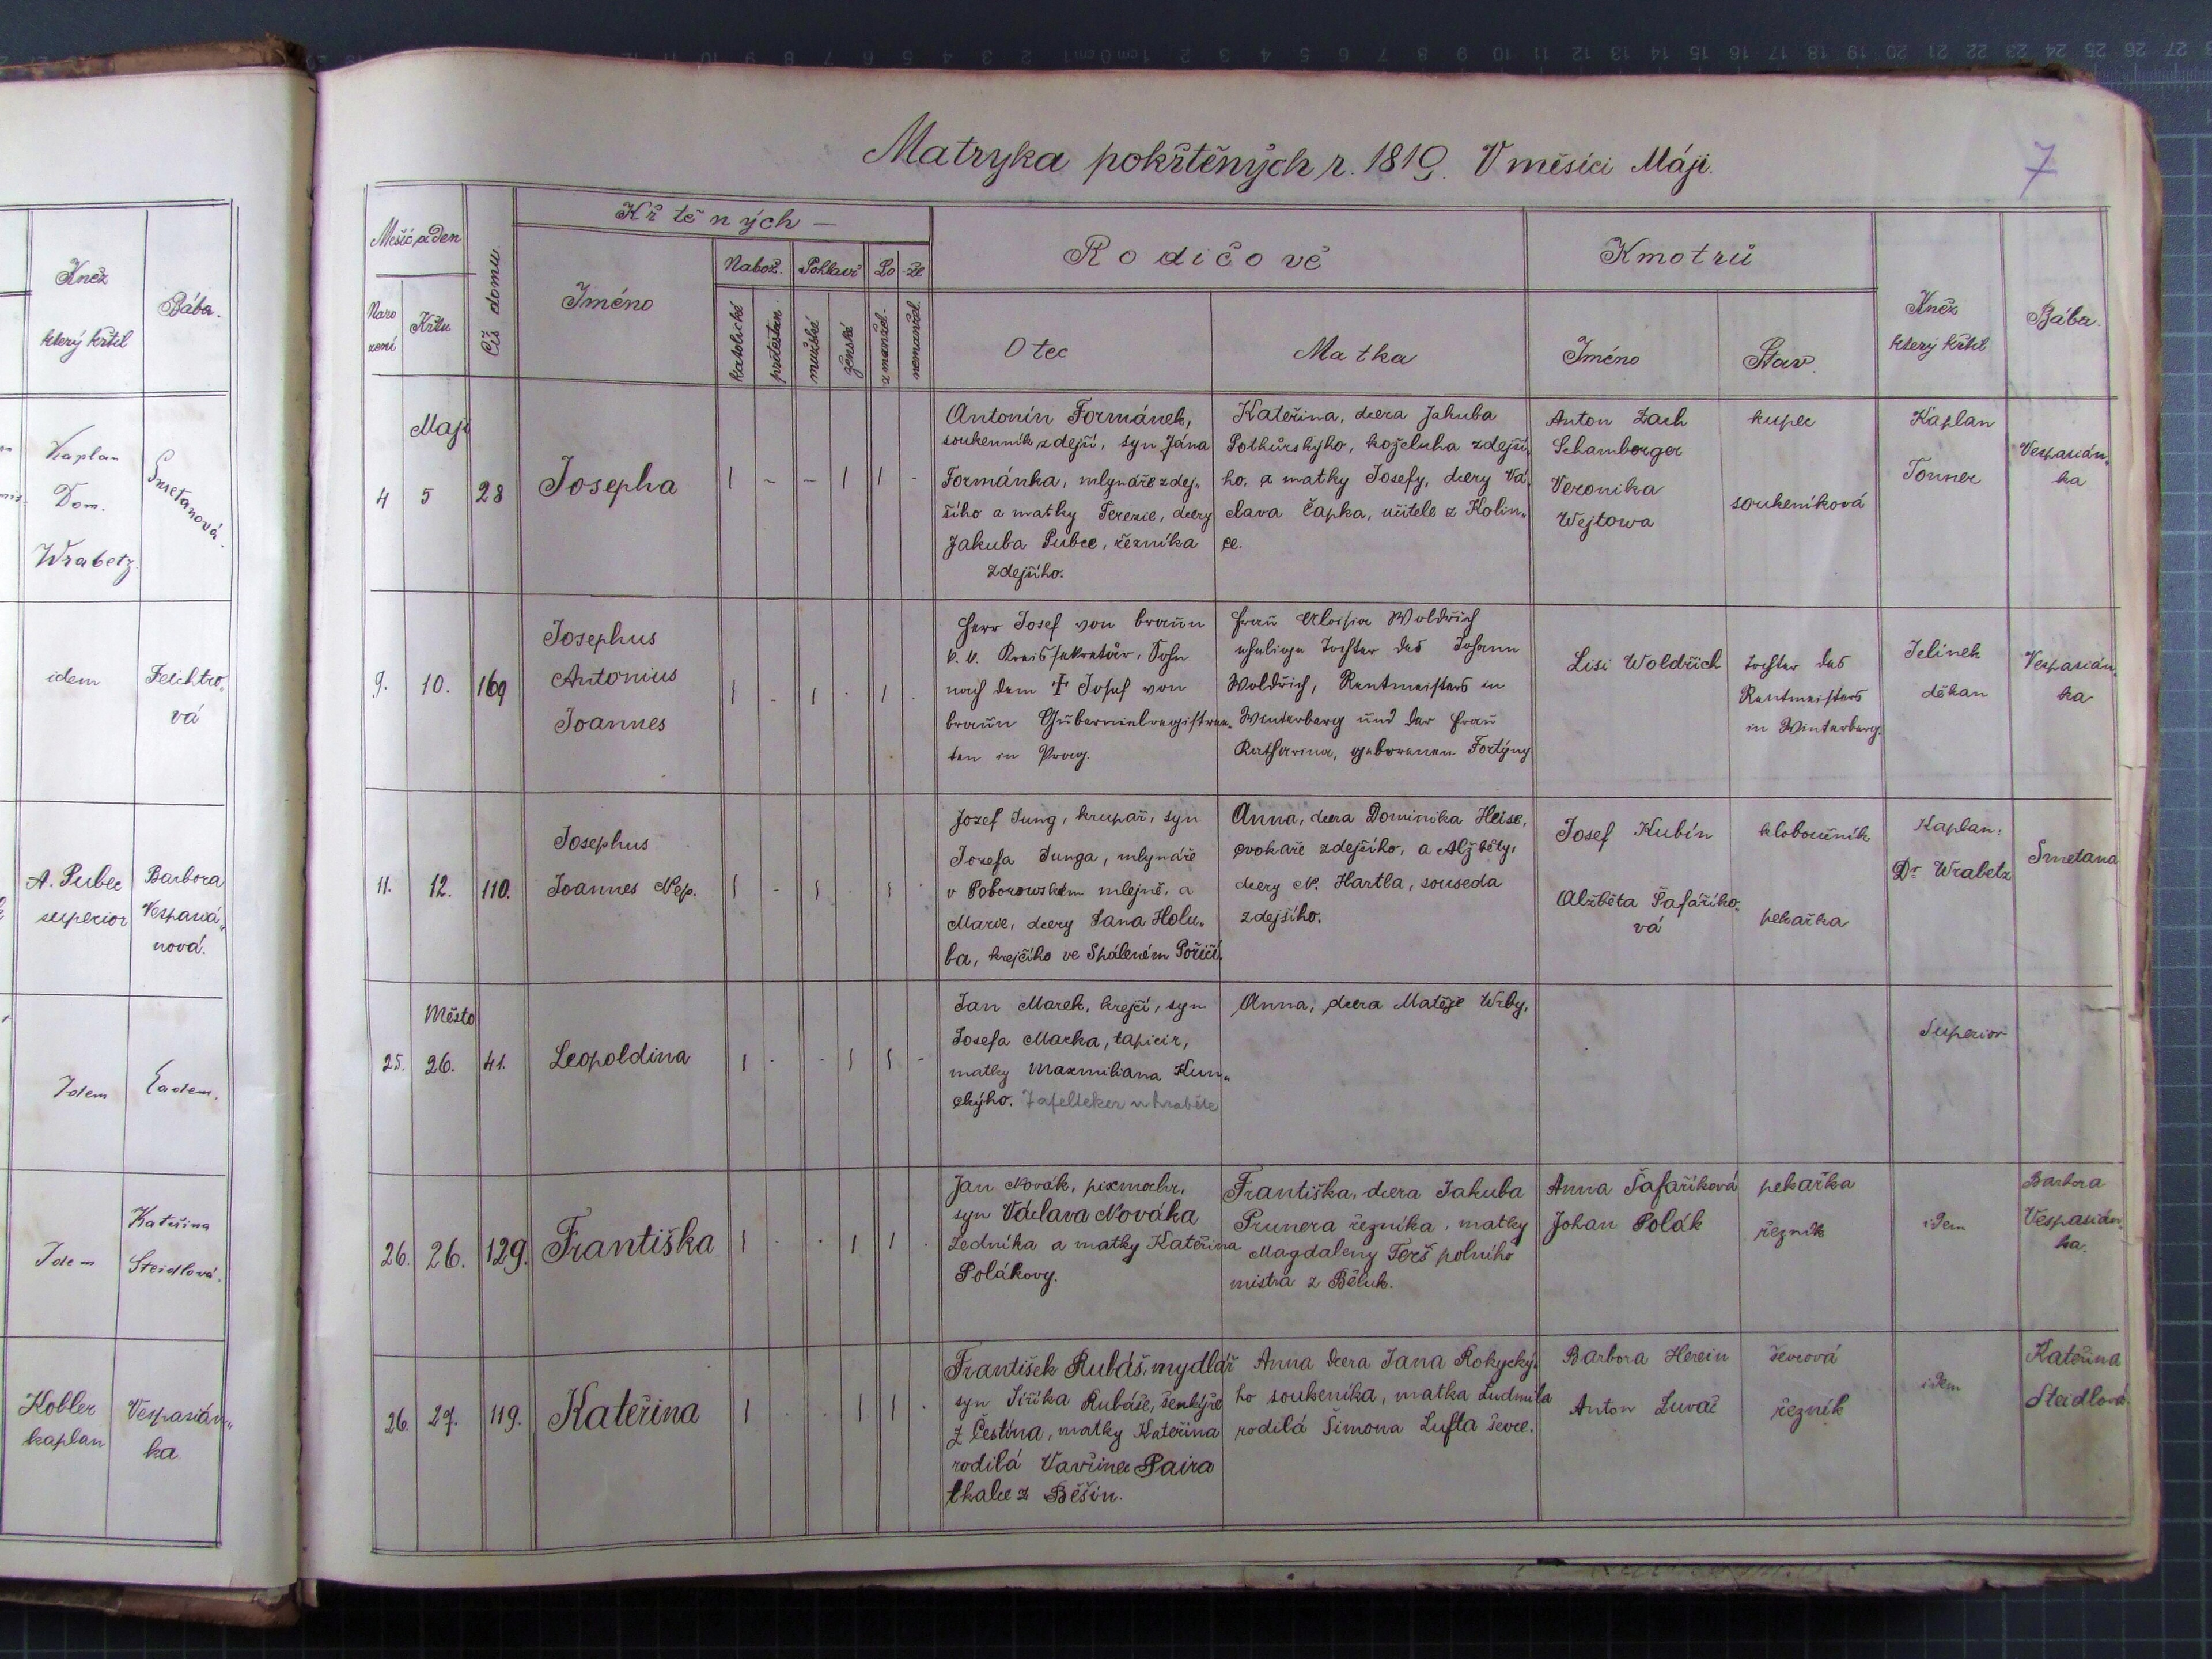 Kněz
který křtil
Bába.
Kaplan
Dom.
Wrabetz.
Smetanová.
idem
Feichtro„
vá
A. Pubec
superior
Barbora
Vespasiá„
nová.
Idem
Eadem.
Idem
Kateřina
Steidlová.
Kobler
kaplan
Vespasián„
ka
Matryka pokřtěných r. 1819. V měsíci Máji.
7
Měsíc a den
Naro
zení
Křtu
Čís domu.
Křtěných —
Jméno
Nabož.
Pohlaví
Lo - že
katolické
protestan.
mužské
ženské
z manžel.
nemanžel.
Rodičové
Otec
Matka
Kmotrů
Jméno
Stav.
Kněz
který křtil
Bába.
Maji
4 5 28 Josepha
Antonín Formánek,
soukenník zdejší, syn Jána
Formánka, mlynáře zdej„
šího a matky Terezie, dcery
Jakuba Pubce, řezníka
zdejšího.
Kateřina, dcera Jakuba
Potkůrskýho, koželuha zdejší„
ho, a matky Josefy, dcery Vá„
clava Čapka, učitele z Kolin„
ce.
Anton Zach
Schamberger
Veronika
Wejtowa
kupec
soukeníková
Kaplan
Tonner
Vespasián„
ka
9. 10. 169
Josephus
Antonius
Joannes
Herr Josef von Braun
k. k. Kreissekretär, Sohn
nach dem † Josef von
Braun Gubernialregistran„
ten in Prag.
Frau Aloisia Woldřich
eheliche Tochter des Johann
Woldřich, Rentmeisters in
Winterberg und der Frau
Katharina, geborenen Fortýny
Lisi Woldřich
Tochter des
Rentmeisters
in Winterberg.
Jelínek
děkan
Vespasián„
ka
11. 12. 110.
Josephus
Joannes Nep.
Jozef Jung, krupař, syn
Jozefa Junga, mlynáře
v Poborowském mlejně, a
Marie, dcery Jana Holu„
ba, krejčího ve Spáleném Poříčí.
Anna, dcera Dominika Heise,
cvokaře zdejšího, a Alžběty,
dcery N. Hartla, souseda
zdejšího.
Josef Kubín
Alžběta Šafaříko„
vá
kloboučník
pekařka
Kaplan:
Dr Wrabetz
Smetana
Město
25. 26. 41. Leopoldina
Jan Marek, krejčí, syn
Josefa Marka, tapicir,
matky Maxmiliana Kun„
ckýho. Tafelteker u hraběte
Anna, dcera Matěje Wrby.
Superior
26. 26. 129. Františka
Jan Novák, pixmachr,
syn Václava Nováka
zedníka a matky Kateřina
Polákovy.
Františka, dcera Jakuba
Prunera řezníka, matky
Magdaleny Ferš polního
mistra z Běluk.
Anna Šafaříková
Johan Polák
pekařka
řezník
idem
Barbora
Vespasián„
ka.
26. 27. 119. Kateřina
František Rubáš, mydlář
syn Jiříka Rubáše, šenkýře
z Čestína, matky Kateřina
rodilá Vavřince Paira
tkalce z Běšin.
Anna dcera Jana Rokycký„
ho soukeníka, matka Ludmila
rodilá Šimona Lufta ševce.
Barbora Herein
Anton Luvač
ševcová
řezník
idem
Kateřina
Steidlová.